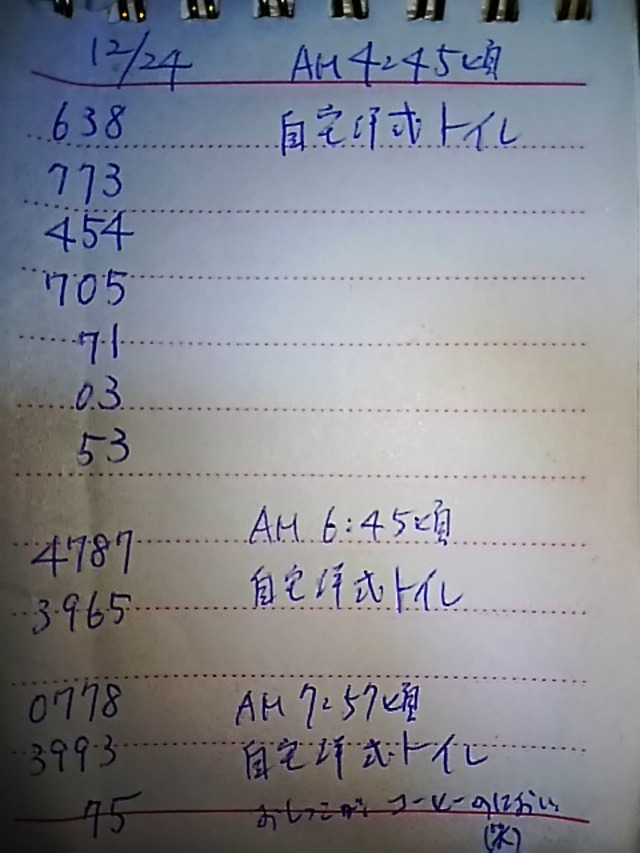 12/24 AM 4:45頃
638 自宅洋式トイレ
773
454
705
71
03
53
AM 6:45頃
4787
自宅洋式トイレ
3965
0778 AM 7:57頃
3993 自宅洋式トイレ
75 おしっこが コーヒーのにおい
(笑)